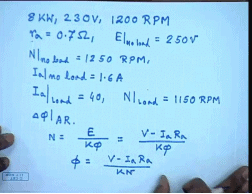 8 KW, 230V, 1200 RPM
ra = 0.7Ω, E|No load = 250V
N|no load = 1250 RPM,
Ia|no load = 1.6A
Ia|Load = 40, N|Load = 1150 RPM
Δφ|AR.
N = E/Kφ = V - Ia Ra/Kφ
φ = V - Ia Ra/KN